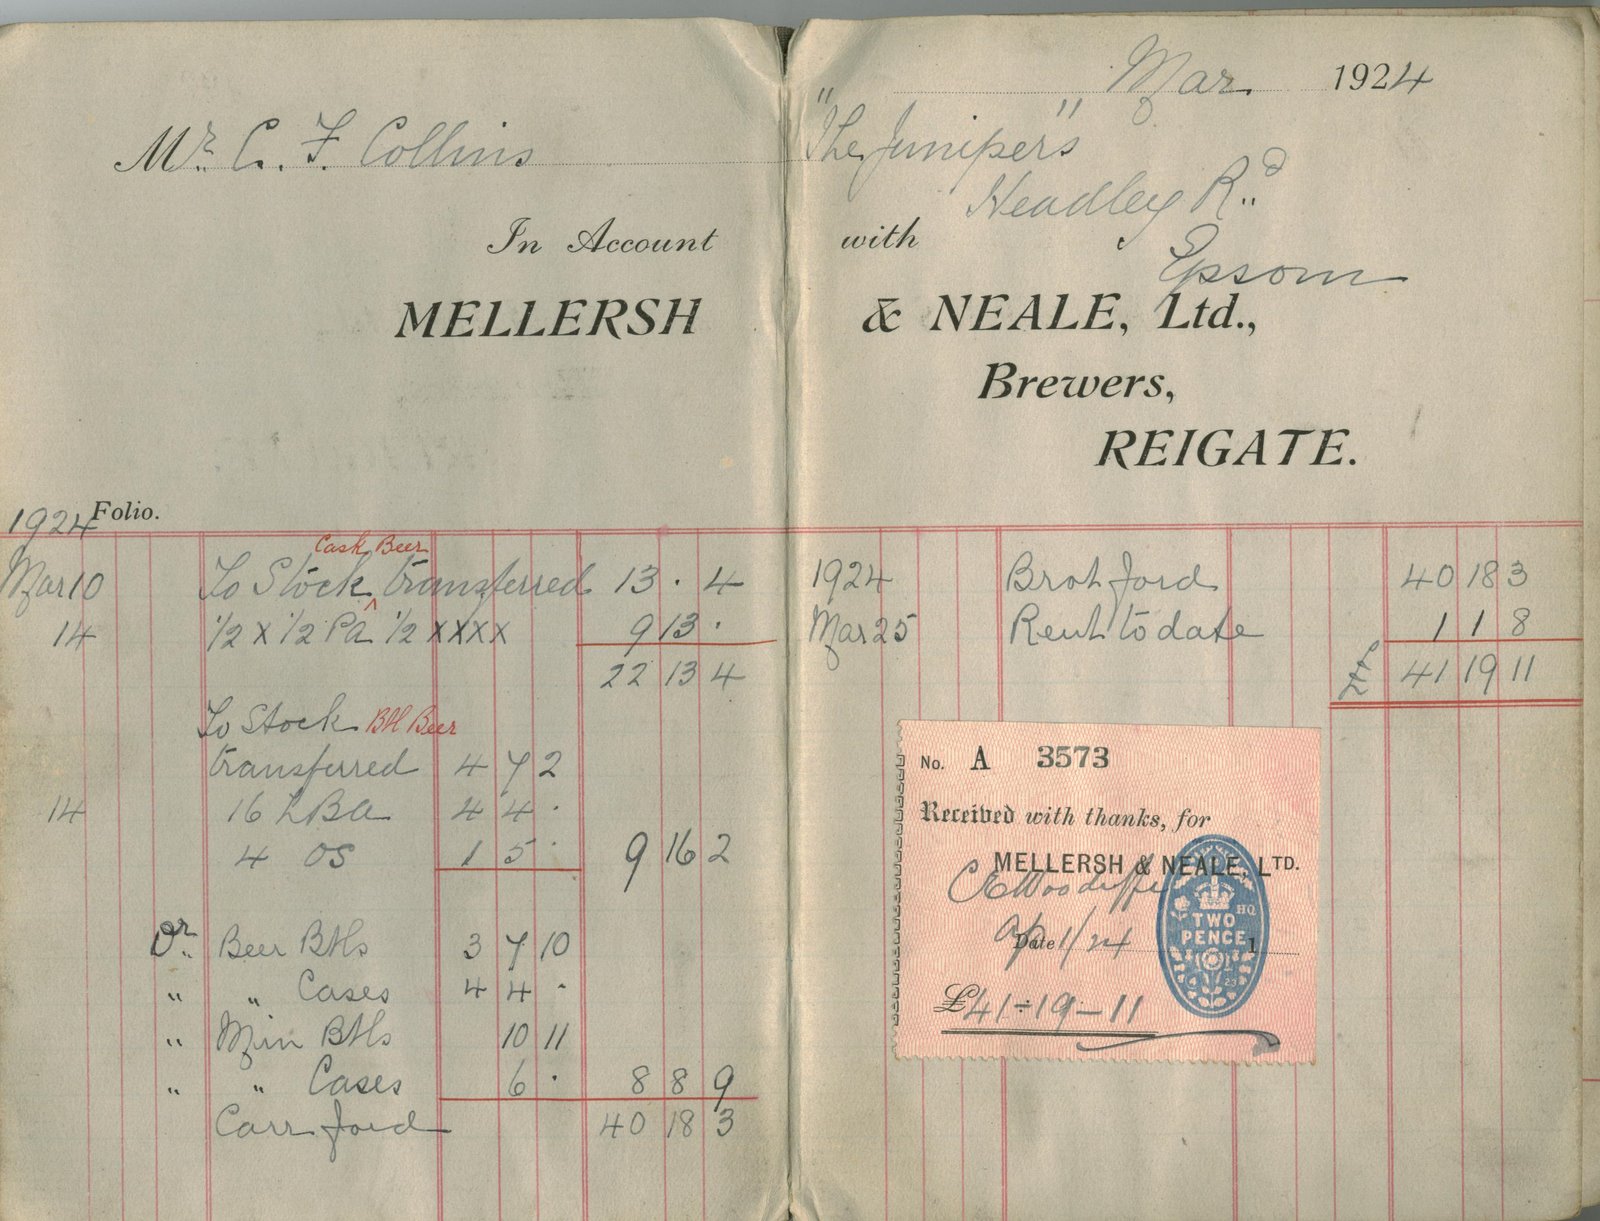 Mr. C. F. Collins
In Account
MELLERSH
1924 Folio.
Cask Beer
Mar 10 To Stock ^ transferred 13 . 4
14 1/2 X 1/2 PA 1/2 XXXX 9 13 .
22 13 4
To Stock Btl Beer
transferred 4 7 2
14 16 LBA 4 4 .
4 OS 1 5 . 9 16 2
Dr. Beer Btls 3 7 10
" " Cases 4 4 .
" Min Btls 10 11
" " Cases 6 . 8 8 9
Carr ford 40 18 3
Mar. 1924
"The Junipers"
Headley Rd
with
Epsom
& NEALE, Ltd.,
Brewers,
REIGATE.
1924 Brot ford 40 18 3
Mar 25 Rent to date 1 1 8
41 19 11
No. A 3573
Received with thanks, for
MELLERSH & NEALE, LTD.
TWO
PENCE
HQ
23
Date Ap 1/24 1
£41-19-11